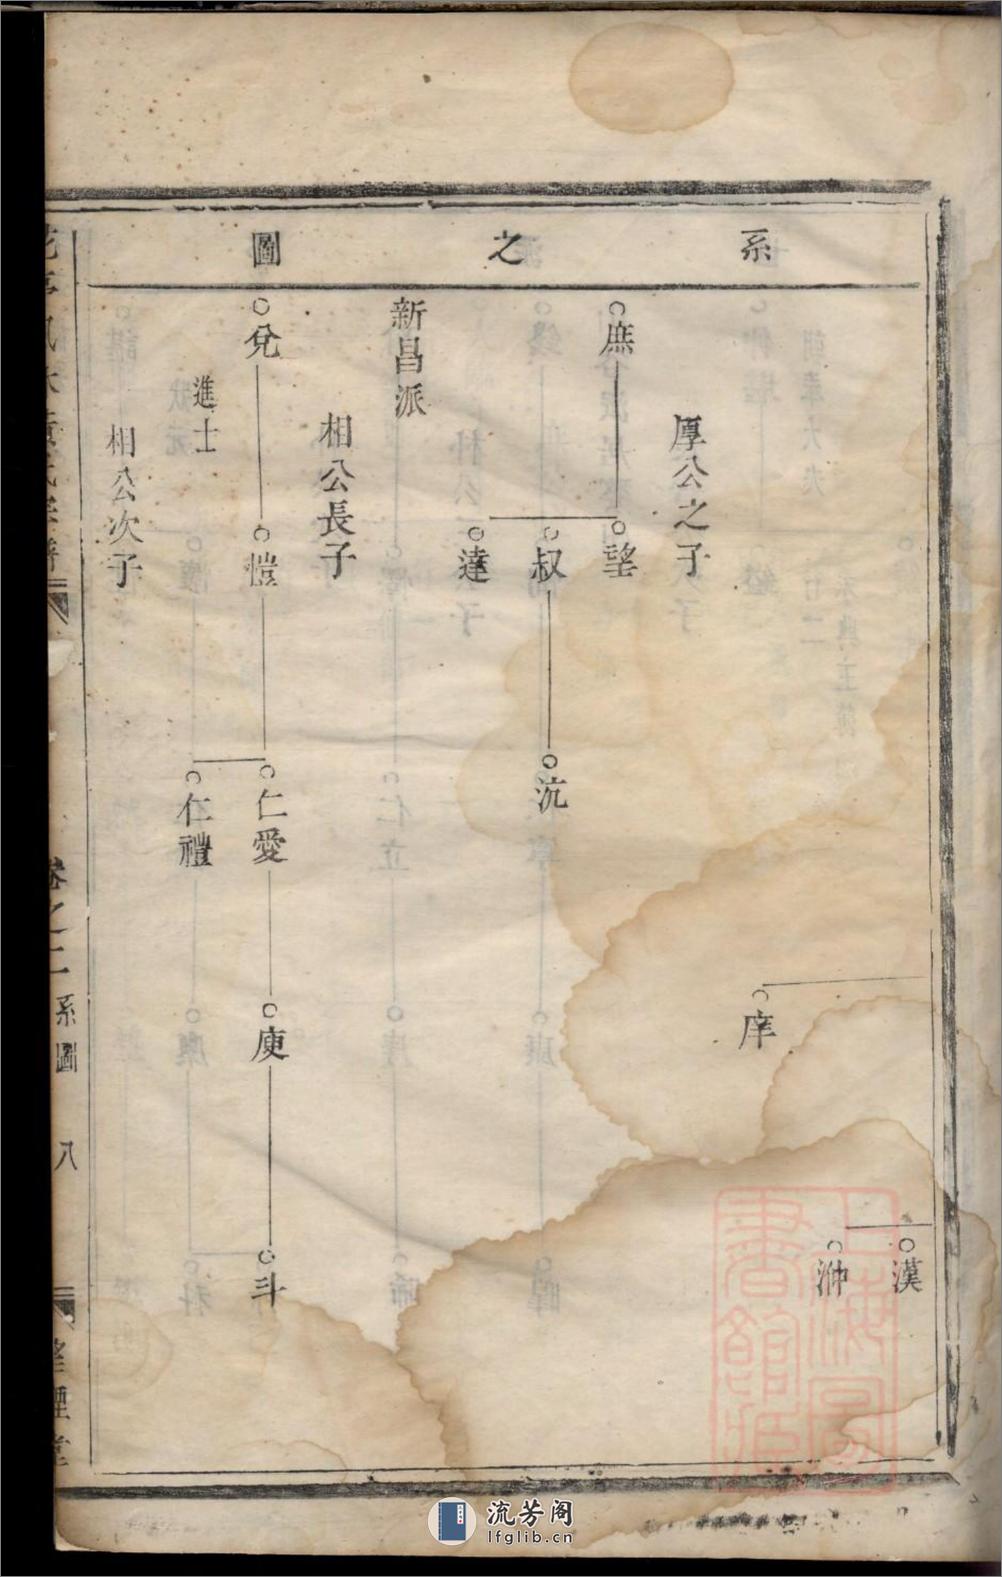 系之圖
厚公之子
庶
望
叔
達
沆
庠
漢
沖
新昌派
相公長子
兌
愷
仁愛
仁禮
庾
斗
進士
相公次子
卷之二
系圖
八
上海圖書館藏
流芳阁
lfglib.cn